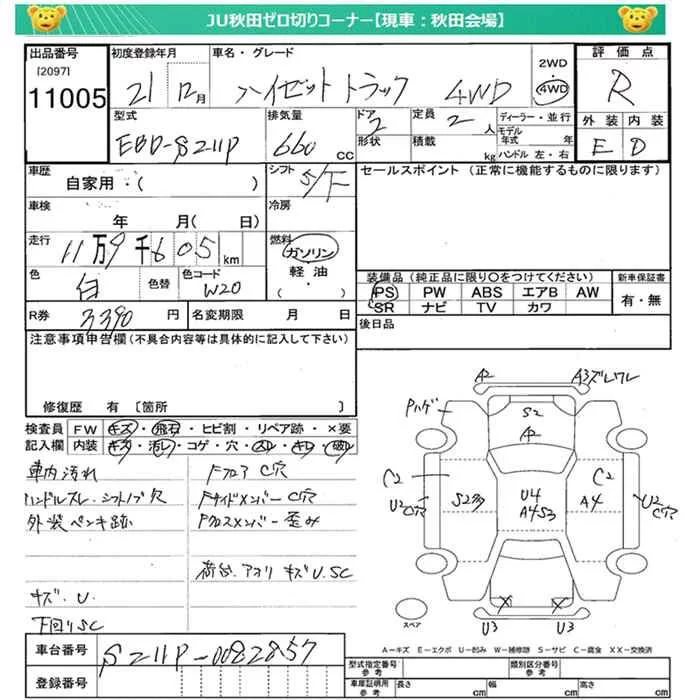 JU秋田ゼロ切りコーナー【現車：秋田会場】
出品番号 初度登録年月 車名・グレード 2WD 4WD 評価点
[2097]
11005 21 12月 ハイゼットトラック 4WD R
型式 排気量 ドア 定員 ディーラー・並行 外装 内装
EBD-S211P 660 CC 2 2人 モデル年式 年 E D
形状 積載 kg ハンドル 左・右
車歴 シフト セールスポイント（正常に機能するものに限ります）
自家用・( ) 5/F
車検 冷房
年 月( 日)
走行 燃料
11万9千605km ガソリン
軽油・
( )
色 色替 色コード 装備品（純正品に限り○をつけてください） 新車保証書
白 W20 PS PW ABS エアB AW 有・無
SR ナビ TV カワ
R券 3390円 名変期限 月 日 後日品
注意事項申告欄（不具合内容等は具体的に記入して下さい）
修復歴 有 〔箇所 〕
検査員 FW・キズ・飛石・ヒビ割・リペア跡・×要
記入欄 内装・キズ・汚レ・コゲ・穴・スレ・キレ・破レ
車内汚れ Fフロア C穴
ハンドルスレ・シフトノブ欠 FサイドメンバーC穴
外装ペンキ跡 Fクロスメンバー歪み
荷台、アオリ キズU.SC
キズ・U
下回りSC
A2 A3ズレワレ
Pハゲ S2
A2
C2 C2
U2 C穴 S2 U4 A4 U2 C穴
A4S3
X X
U3 U3
スペア
A-キズ E-エクボ U-凹み W-補修跡 S-サビ C-腐食 XX-交換済
車台番号 S211P-0082857
型式指定番号 参考 類別区分番号 参考
登録番号 車庫証明用 参考 長さ cm 幅 cm 高さ cm